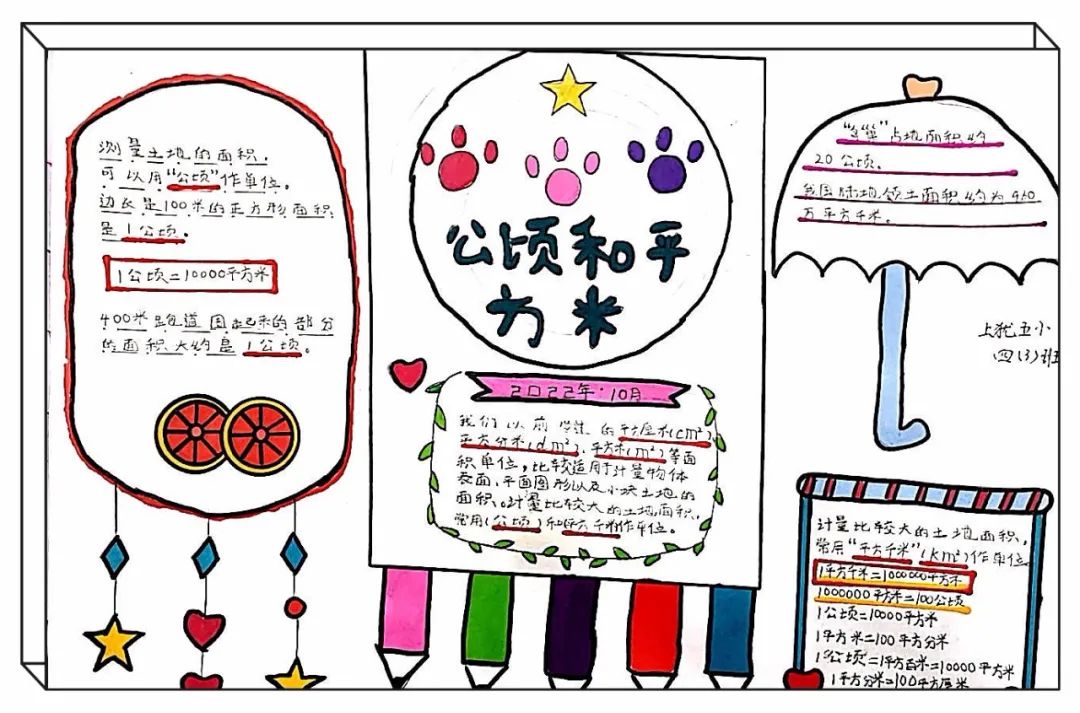 测量土地的面积，
可以用“公顷”作单位。
边长是100米的正方形面积
是1公顷。
1公顷=10000平方米
400米跑道围起来的部分
的面积大约是1公顷。
公顷和平
方米
2022年·10月
我们以前学过的平方厘米(cm²)、
平方分米(dm²)、平方米(m²)等面
积单位，比较适用于计量物体
表面、平面图形以及小块土地的
面积。计量比较大的土地面积，
常用(公顷)和平方千米作单位。
“鸟巢”占地面积约
20公顷。
我国陆地领土面积约为960
万平方千米。
上犹五小
四(3)班
计量比较大的土地面积，
常用“平方千米”(km²)作单位
1平方千米=1000000平方米
1000000平方米=100公顷
1公顷=10000平方米
1平方米=100平方分米
1公顷=1平方百米=10000平方米
1平方分米=100平方厘米